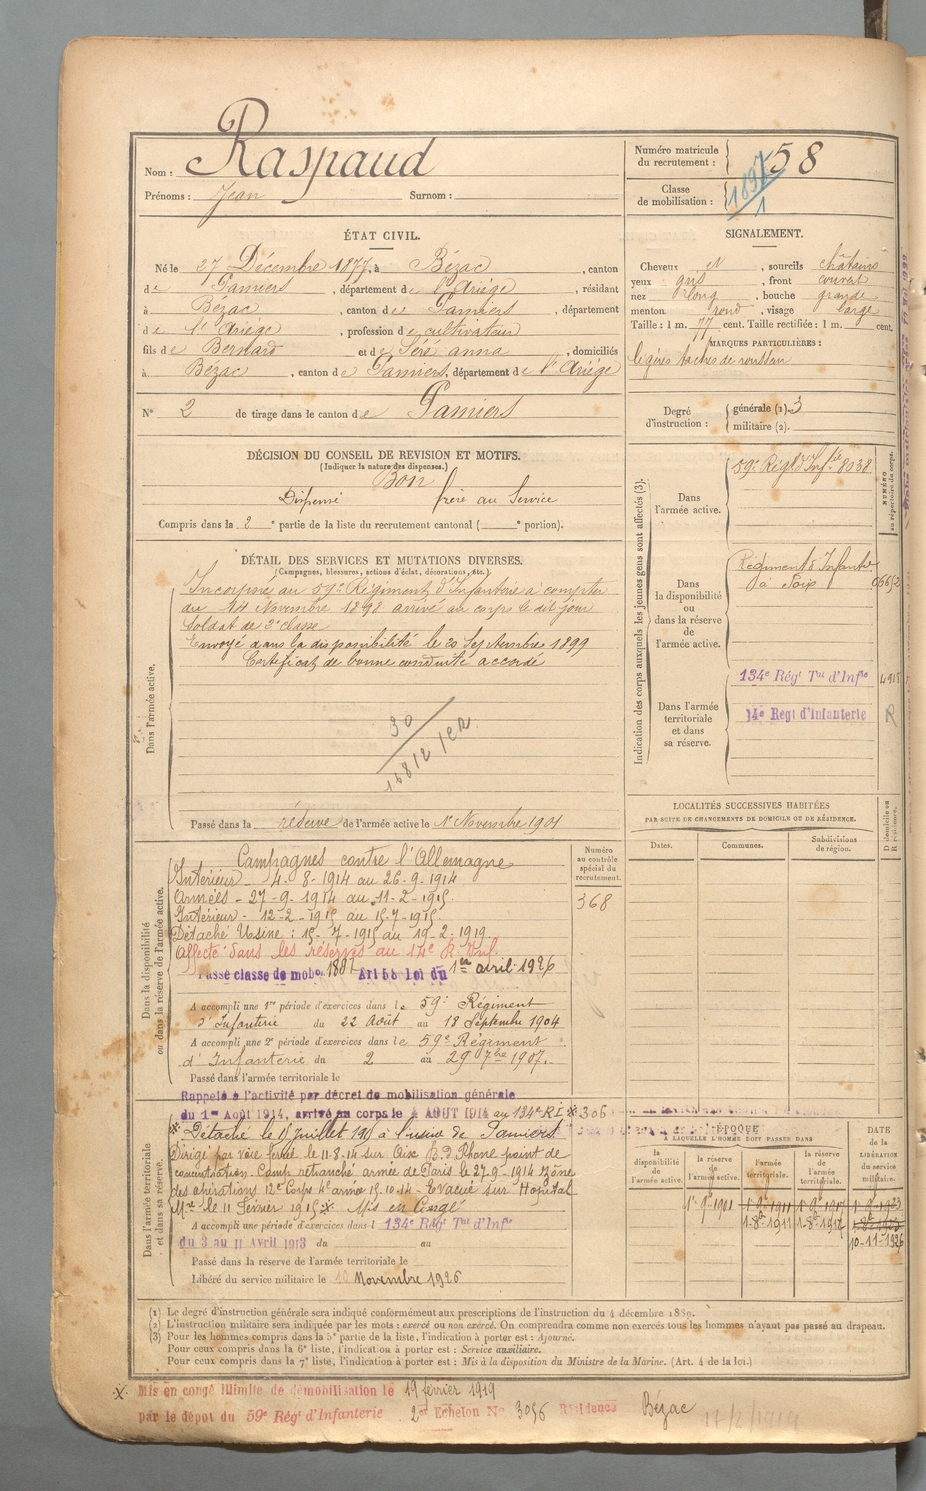 Nom : Raspaud
Prénoms : Jean Surnom :
Numéro matricule du recrutement : 58
Classe de mobilisation : 1897
1
ÉTAT CIVIL.
Né le 27 Décembre 1877, à Bézac, canton
de Pamiers, département de l'Ariège, résidant
à Bézac, canton de Pamiers, département
de l'Ariège, profession de cultivateur
fils de Bernard et de Séré anna, domiciliés
à Bézac, canton de Pamiers, département de l'Ariège
N° 2 de tirage dans le canton de Pamiers
SIGNALEMENT.
Cheveux et, sourcils châtains
yeux gris, front couvert
nez long, bouche grande
menton rond, visage large
Taille : 1 m. 77 cent. Taille rectifiée : 1 m. cent.
MARQUES PARTICULIÈRES :
légères taches de rousseur
Degré d'instruction : générale (1). 3
militaire (2).
DÉCISION DU CONSEIL DE REVISION ET MOTIFS.
(Indiquer la nature des dispenses.)
Bon
Dispensé frère au Service
Compris dans la 2e partie de la liste du recrutement cantonal ( e portion).
DÉTAIL DES SERVICES ET MUTATIONS DIVERSES.
(Campagnes, blessures, actions d'éclat, décorations, etc.)
Dans l'armée active.
Incorporé au 59e Régiment d'Infanterie à compter
du 14 Novembre 1898 arrivé au corps le dit jour
Soldat de 2e classe
Envoyé dans la disponibilité le 20 Septembre 1899
Certificat de bonne conduite accordé
30
Passé dans la réserve de l'armée active le 1er Novembre 1901
Indication des corps auxquels les jeunes gens sont affectés (3).
NUMÉRO au répertoire du corps.
Dans l'armée active.
59e Régt d'Infie 8038
Dans la disponibilité ou dans la réserve de l'armée active.
Régiment d'Infanterie
à Foix
Dans l'armée territoriale et dans sa réserve.
134e Régt Tal d'Infie
14e Régt d'Infanterie R
LOCALITÉS SUCCESSIVES HABITÉES
PAR SUITE DE CHANGEMENTS DE DOMICILE OU DE RÉSIDENCE.
Dates. Communes. Subdivisions de région. D domicile ou R résidence.
Dans la disponibilité ou dans la réserve de l'armée active.
Numéro au contrôle spécial du recrutement.
368
Campagnes contre l'Allemagne
Intérieur 4-8-1914 au 26-9-1914
Armées - 27-9-1914 au 11-2-1915
Intérieur - 12-2-1915 au 15-7-1915
Détaché Usine : 15-7-1915 au 19-2-1919
Affecté dans les réserves au 14e R. Inf.
Passé classe de mobon 1897 Art 58 Loi du 1er avril 1926
A accompli une 1re période d'exercices dans le 59e Régiment
d'Infanterie du 22 Août au 18 Septembre 1904
A accompli une 2e période d'exercices dans le 59e Régiment
d'Infanterie du 2 au 29 7bre 1907.
Passé dans l'armée territoriale le
Dans l'armée territoriale et dans sa réserve.
Rappelé à l'activité par décret de mobilisation générale
du 1er Août 1914, arrivé au corps le 4 AOUT 1914 au 134e R.I. ※ 306
※ Détaché le 15 juillet 1915 à l'usine de Pamiers
Dirigé par voie ferrée le 11-8-14 sur Aix B.D. Rhone point de
concentration. Camp retranché armée de Paris le 27-9-1914 Zône
des opérations 12e Corps 4e armée 15-10-14 - Evacué sur Hopital
Mre le 11 Février 1915 ※ Mis en Congé
A accompli une période d'exercices dans l 134e Régt Tal d'Infie
du 3 au 11 Avril 1913 du au
Passé dans la réserve de l'armée territoriale le
Libéré du service militaire le 10 Novembre 1926
ÉPOQUE
À LAQUELLE L'HOMME DOIT PASSER DANS
la disponibilité de l'armée active. la réserve de l'armée active. l'armée territoriale. la réserve de l'armée territoriale. DATE de la LIBÉRATION du service militaire.
1-9bre 1901 1-9bre 1911 1-9bre 1917 1-9bre 1923
1-8bre 1911 1-8bre 1917 1-8bre 1923
10-11-1926
(1) Le degré d'instruction générale sera indiqué conformément aux prescriptions de l'instruction du 4 décembre 1889.
(2) L'instruction militaire sera indiquée par les mots : exercé ou non exercé. On comprendra comme non exercés tous les hommes n'ayant pas passé au drapeau.
(3) Pour les hommes compris dans la 5e partie de la liste, l'indication à porter est : Ajourné.
Pour ceux compris dans la 6e liste, l'indication à porter est : Service auxiliaire.
Pour ceux compris dans la 7e liste, l'indication à porter est : Mis à la disposition du Ministre de la Marine. (Art. 4 de la loi.)
※ Mis en congé illimité de démobilisation le 19 février 1919
par le dépôt du 59e Régt d'Infanterie 2e Echelon N° 3056 Résidence Bézac